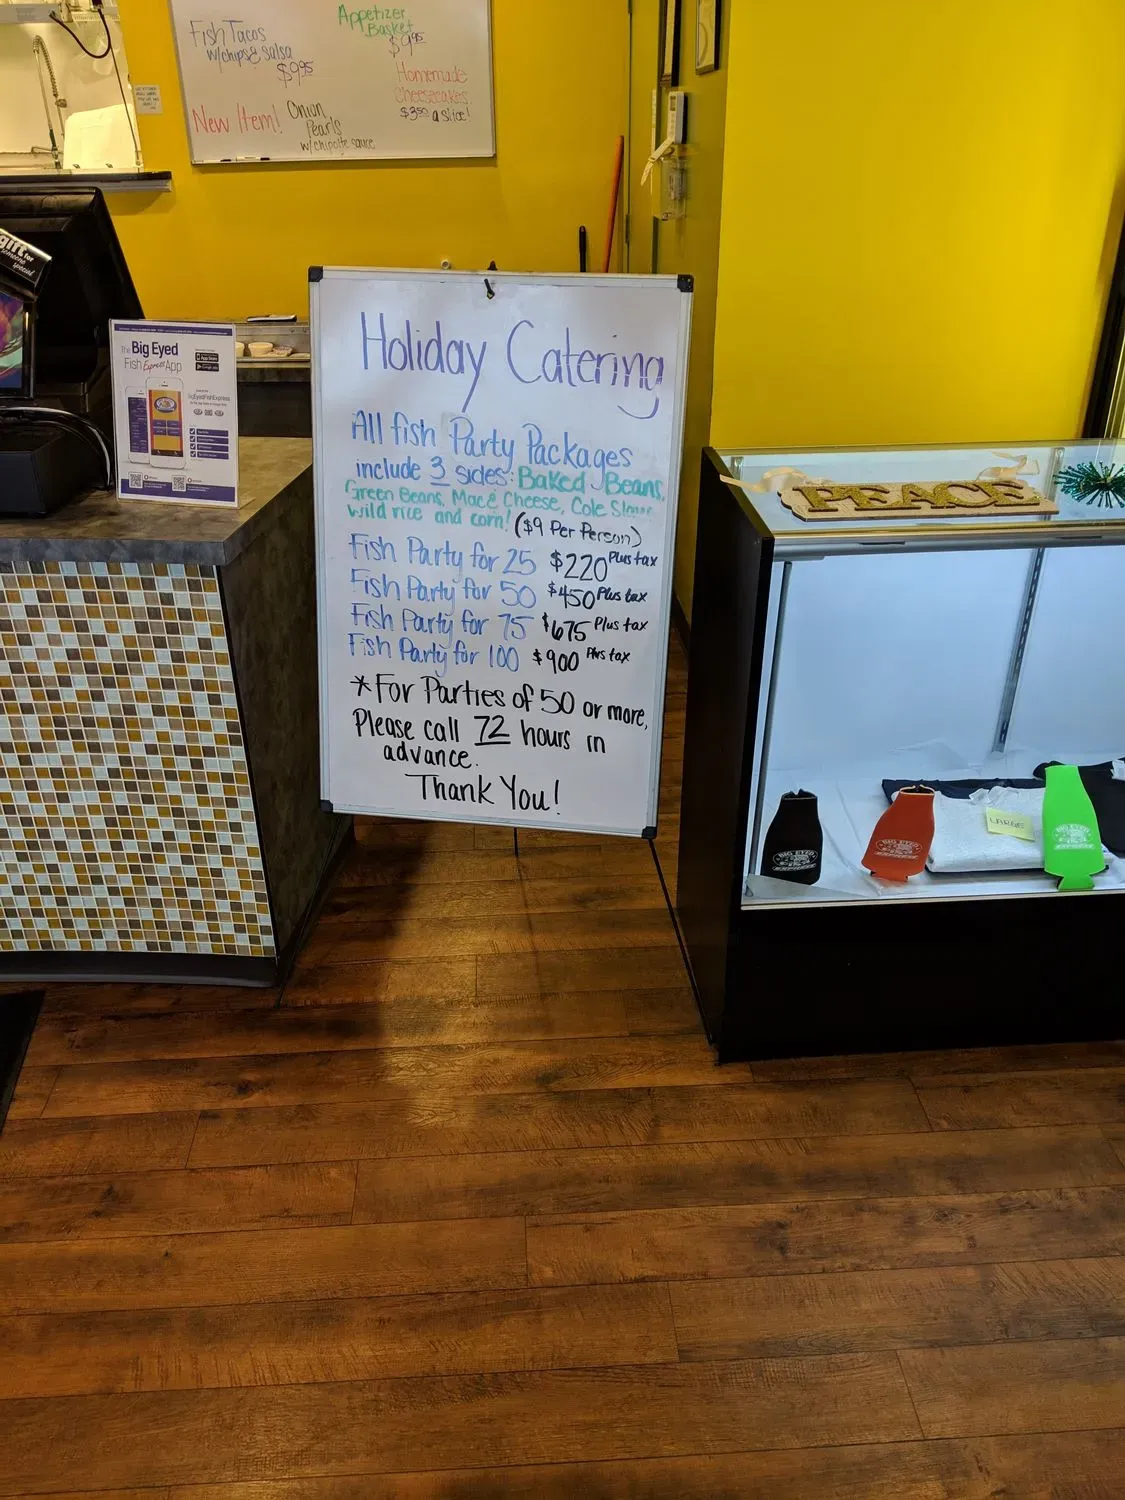 Fish Tacos
w/chips & salsa
$9.95
Appetizer
Basket
$9.95
Homemade
Cheesecakes
$3.50 a slice!
New Item!
Onion
Pearls
w/chipotle sauce
gift for
someone
special
The Big Eyed
Fish Express App
BigEyedFishExpress
Holiday Catering
All fish Party Packages
include 3 sides: Baked Beans,
Green Beans, Mac & Cheese, Cole Slaw,
wild rice and corn! ($9 Per Person)
Fish Party for 25 $220 Plus tax
Fish Party for 50 $450 Plus tax
Fish Party for 75 $675 Plus tax
Fish Party for 100 $900 Plus tax
*For Parties of 50 or more,
Please call 72 hours in
advance.
Thank You!
PEACE
LARGE
BIG EYED
EXPRESS
BIG EYED
EXPRESS
BIG EYED
EXPRESS